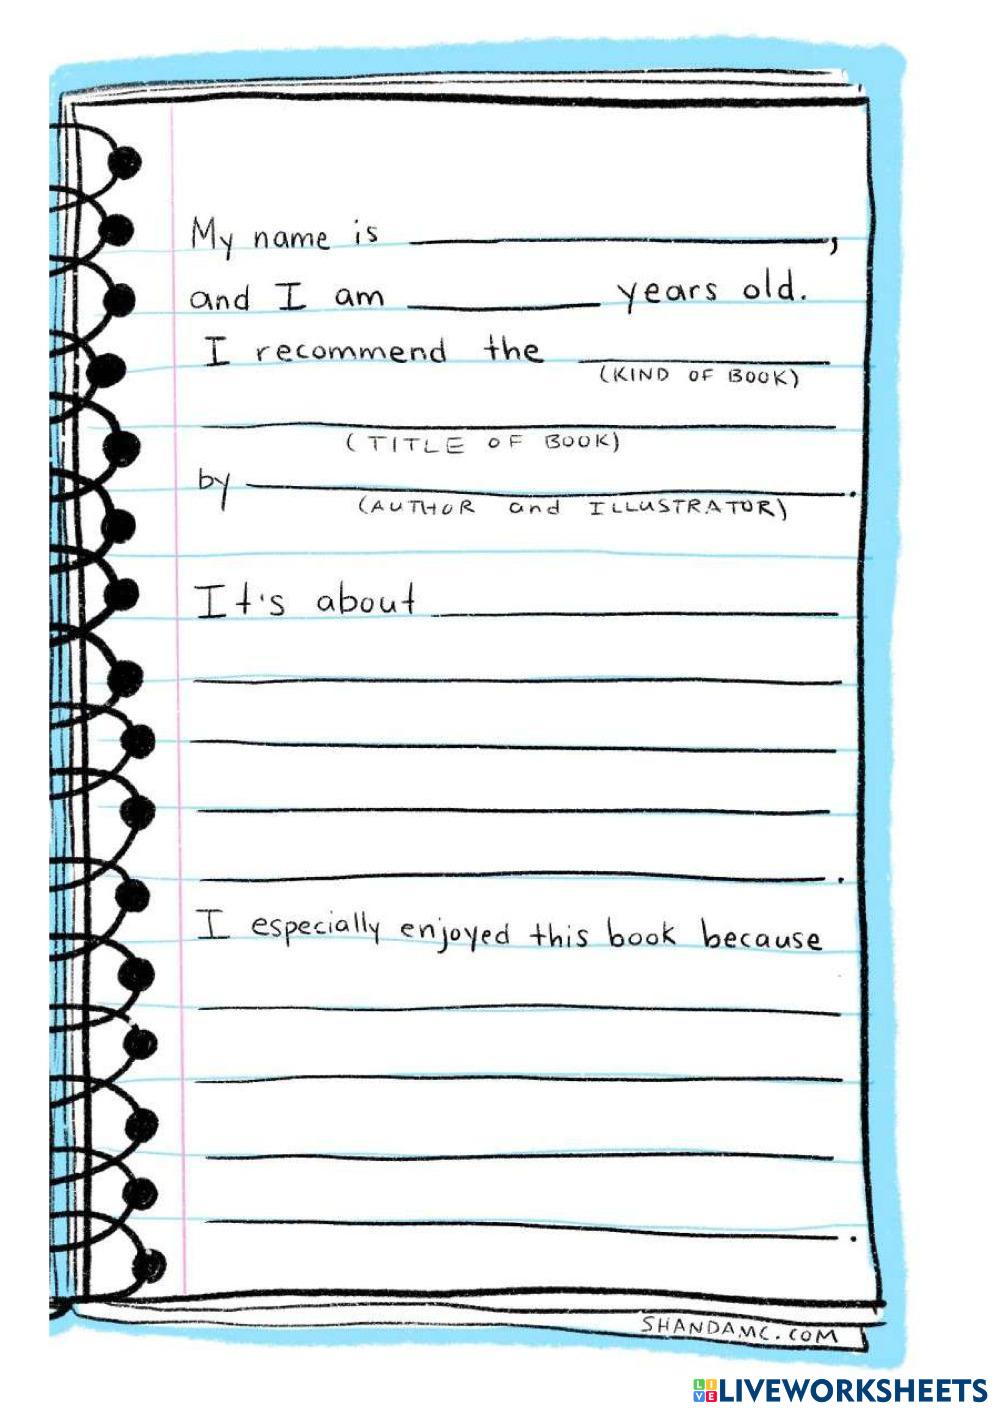 My name is ,
and I am years old.
I recommend the
(KIND OF BOOK)
(TITLE OF BOOK)
by .
(AUTHOR and ILLUSTRATOR)
It's about
.
I especially enjoyed this book because
.
SHANDAMC.COM
LIVE LIVEWORKSHEETS